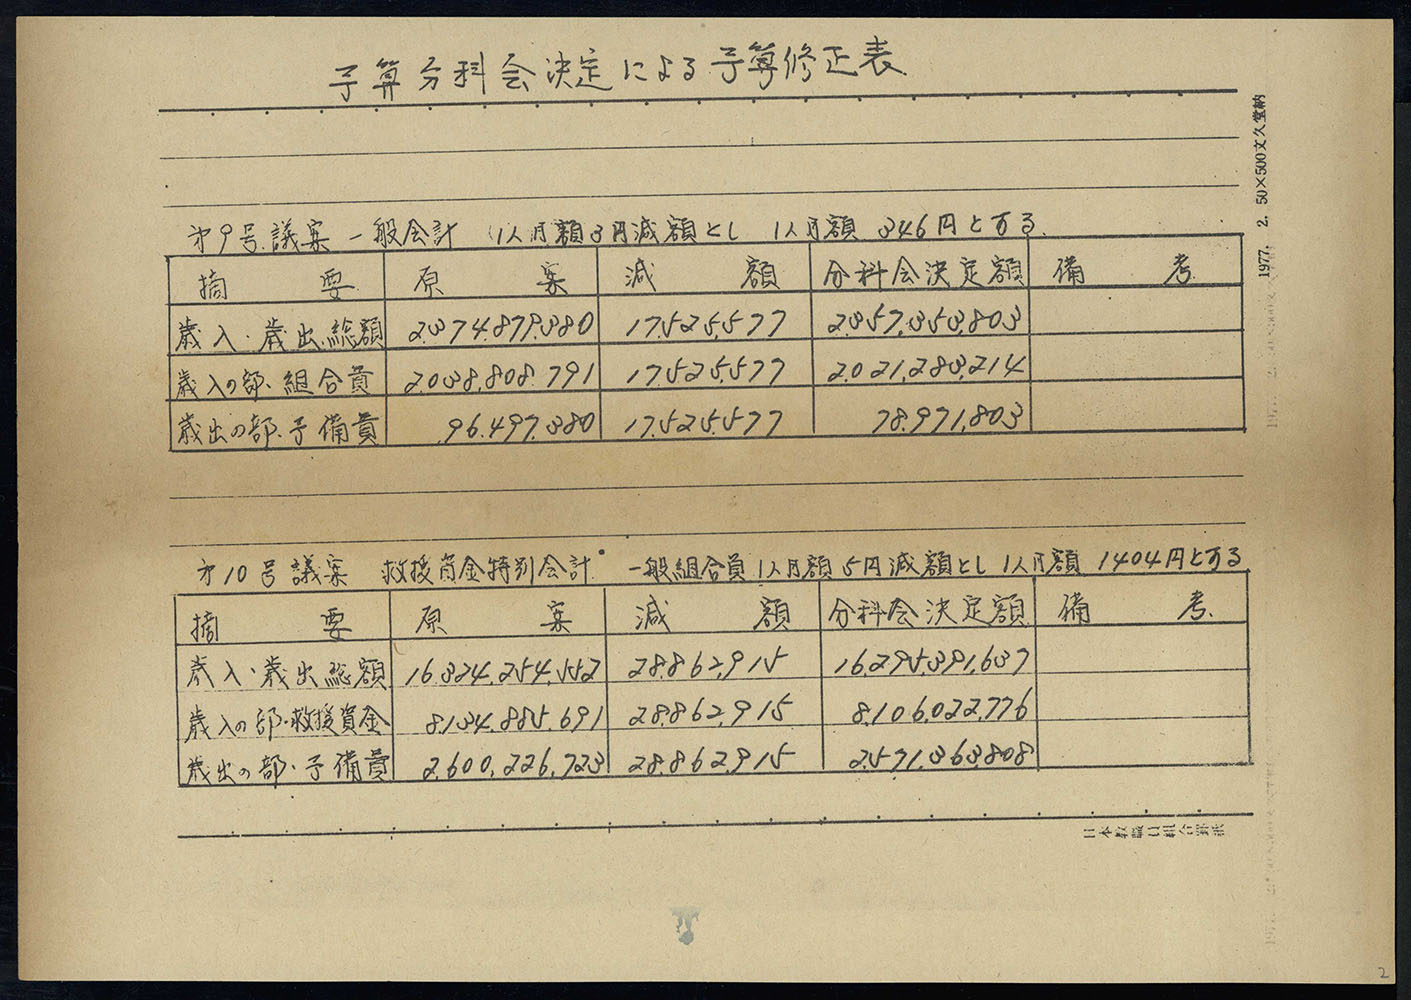 予算分科会決定による予算修正表
才9号議案 一般会計 1人月額3円減額とし 1人月額 346円とする
摘 要 原 案 減 額 分科会決定額 備 考
歳入・歳出総額 2,374,879,380 17,525,577 2,357,353,803
歳入の部・組合員 2,038,808,791 17,525,577 2,021,283,214
歳出の部・予備費 96,497,380 17,525,577 78,971,803
才10号議案 救援資金特別会計 一般組合員1人月額5円減額とし 1人月額 1404円とする
摘 要 原 案 減 額 分科会決定額 備 考
歳入・歳出総額 16,324,254,552 28,862,915 16,295,391,637
歳入の部・救援資金 8,134,885,691 28,862,915 8,106,022,776
歳出の部・予備費 2,600,226,723 28,862,915 2,571,363,808
日本教職員組合罫紙
1977. 2. 50×500文久堂納
2